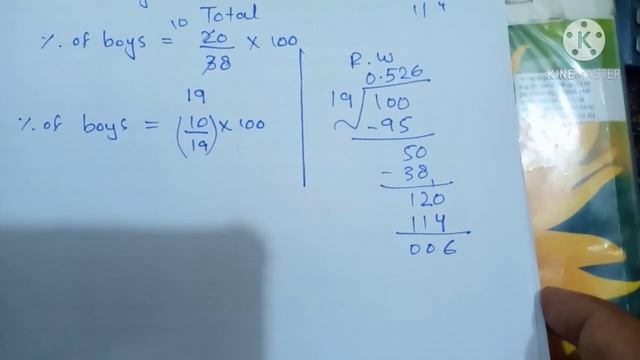 Total
% of boys = 20/38 × 100
10
19
% of boys = (10/19) × 100
R.W
0.526
19 100
-95
50
-38
120
114
006
KINEMASTER